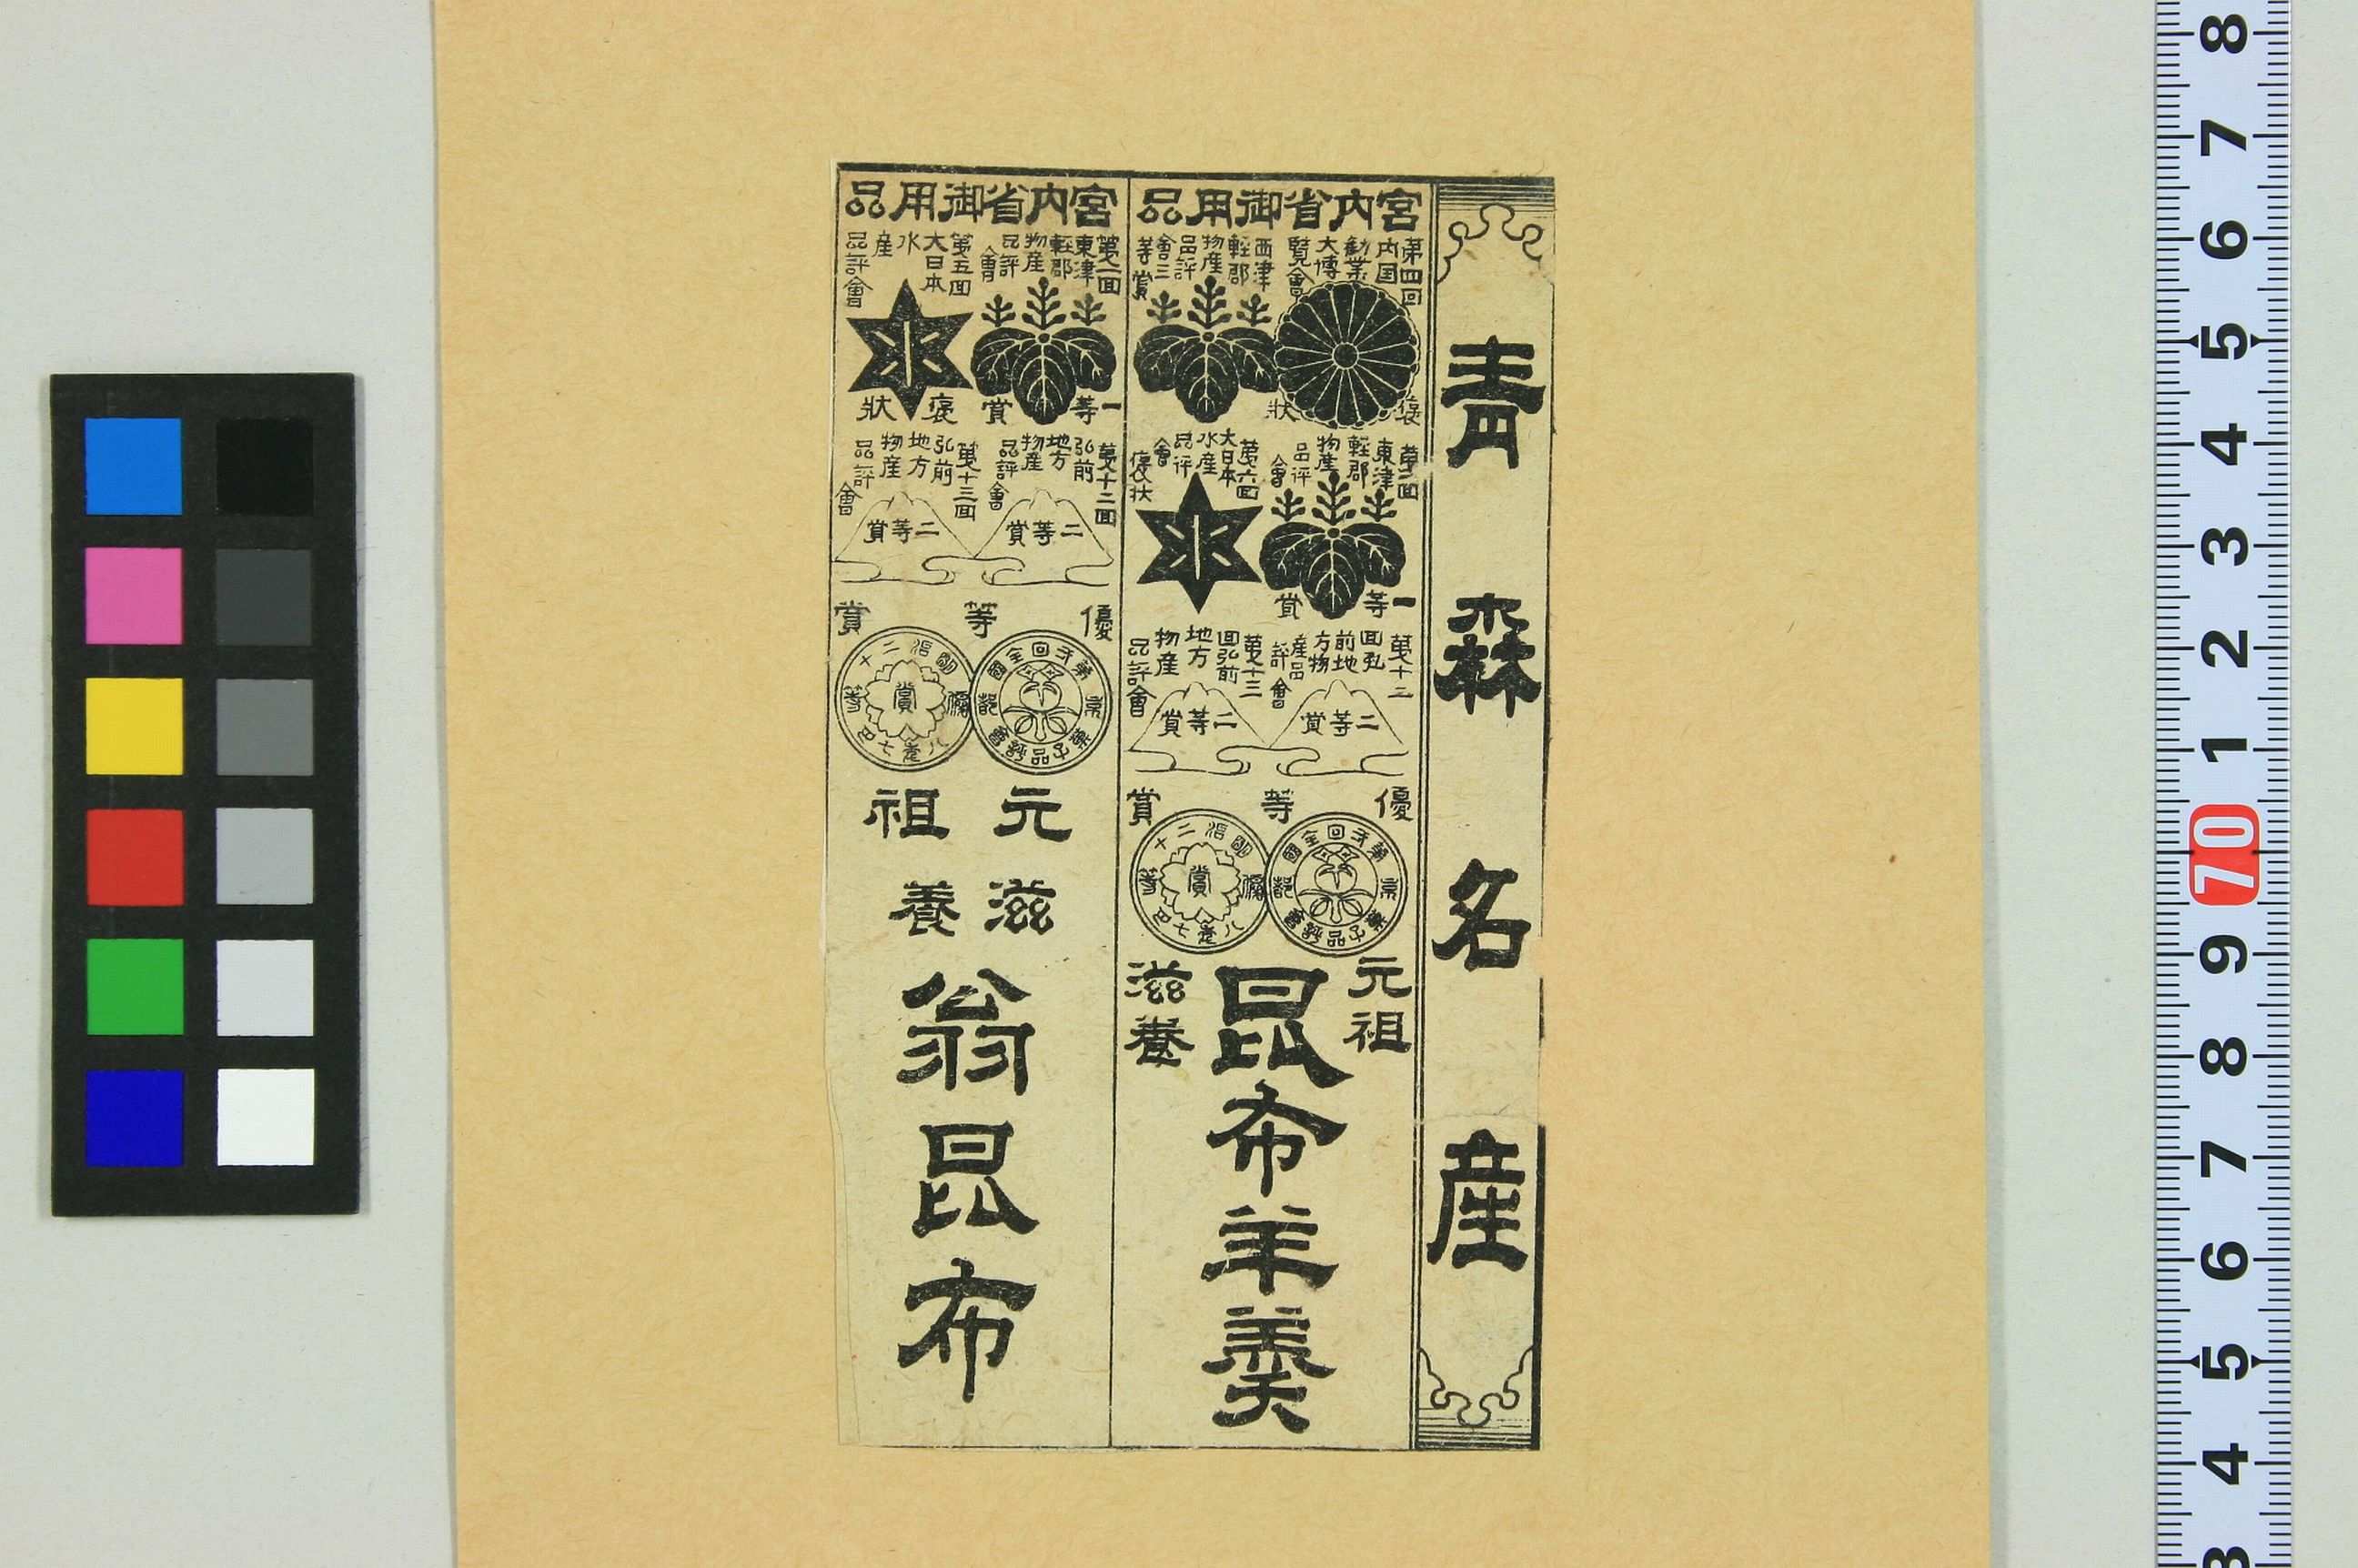 青森名産
宮内省御用品
第四回
内国
勧業
大博
覧會
褒状
西津
軽郡
物産
品評
會三
等賞
東津
軽郡
物産
品評
會
一等賞
第六回
大日本
水産
品評
會
褒状
第十二
回弘
前地
方物
産品
評會
二等賞
第十三
回弘前
地方
物産
品評會
二等賞
優等賞
全國
菓子品評會
賞
元祖
滋養
昆布羊羹
宮内省御用品
東津
軽郡
物産
品評
會
一等賞
第五回
大日本
水産
品評會
褒状
第十二回
弘前
地方
物産
品評會
二等賞
第十三回
弘前
地方
物産
品評會
二等賞
優等賞
全國
菓子品評會
賞
元祖
滋養
翁昆布
8
7
6
5
4
3
2
1
70
9
8
7
6
5
4
3